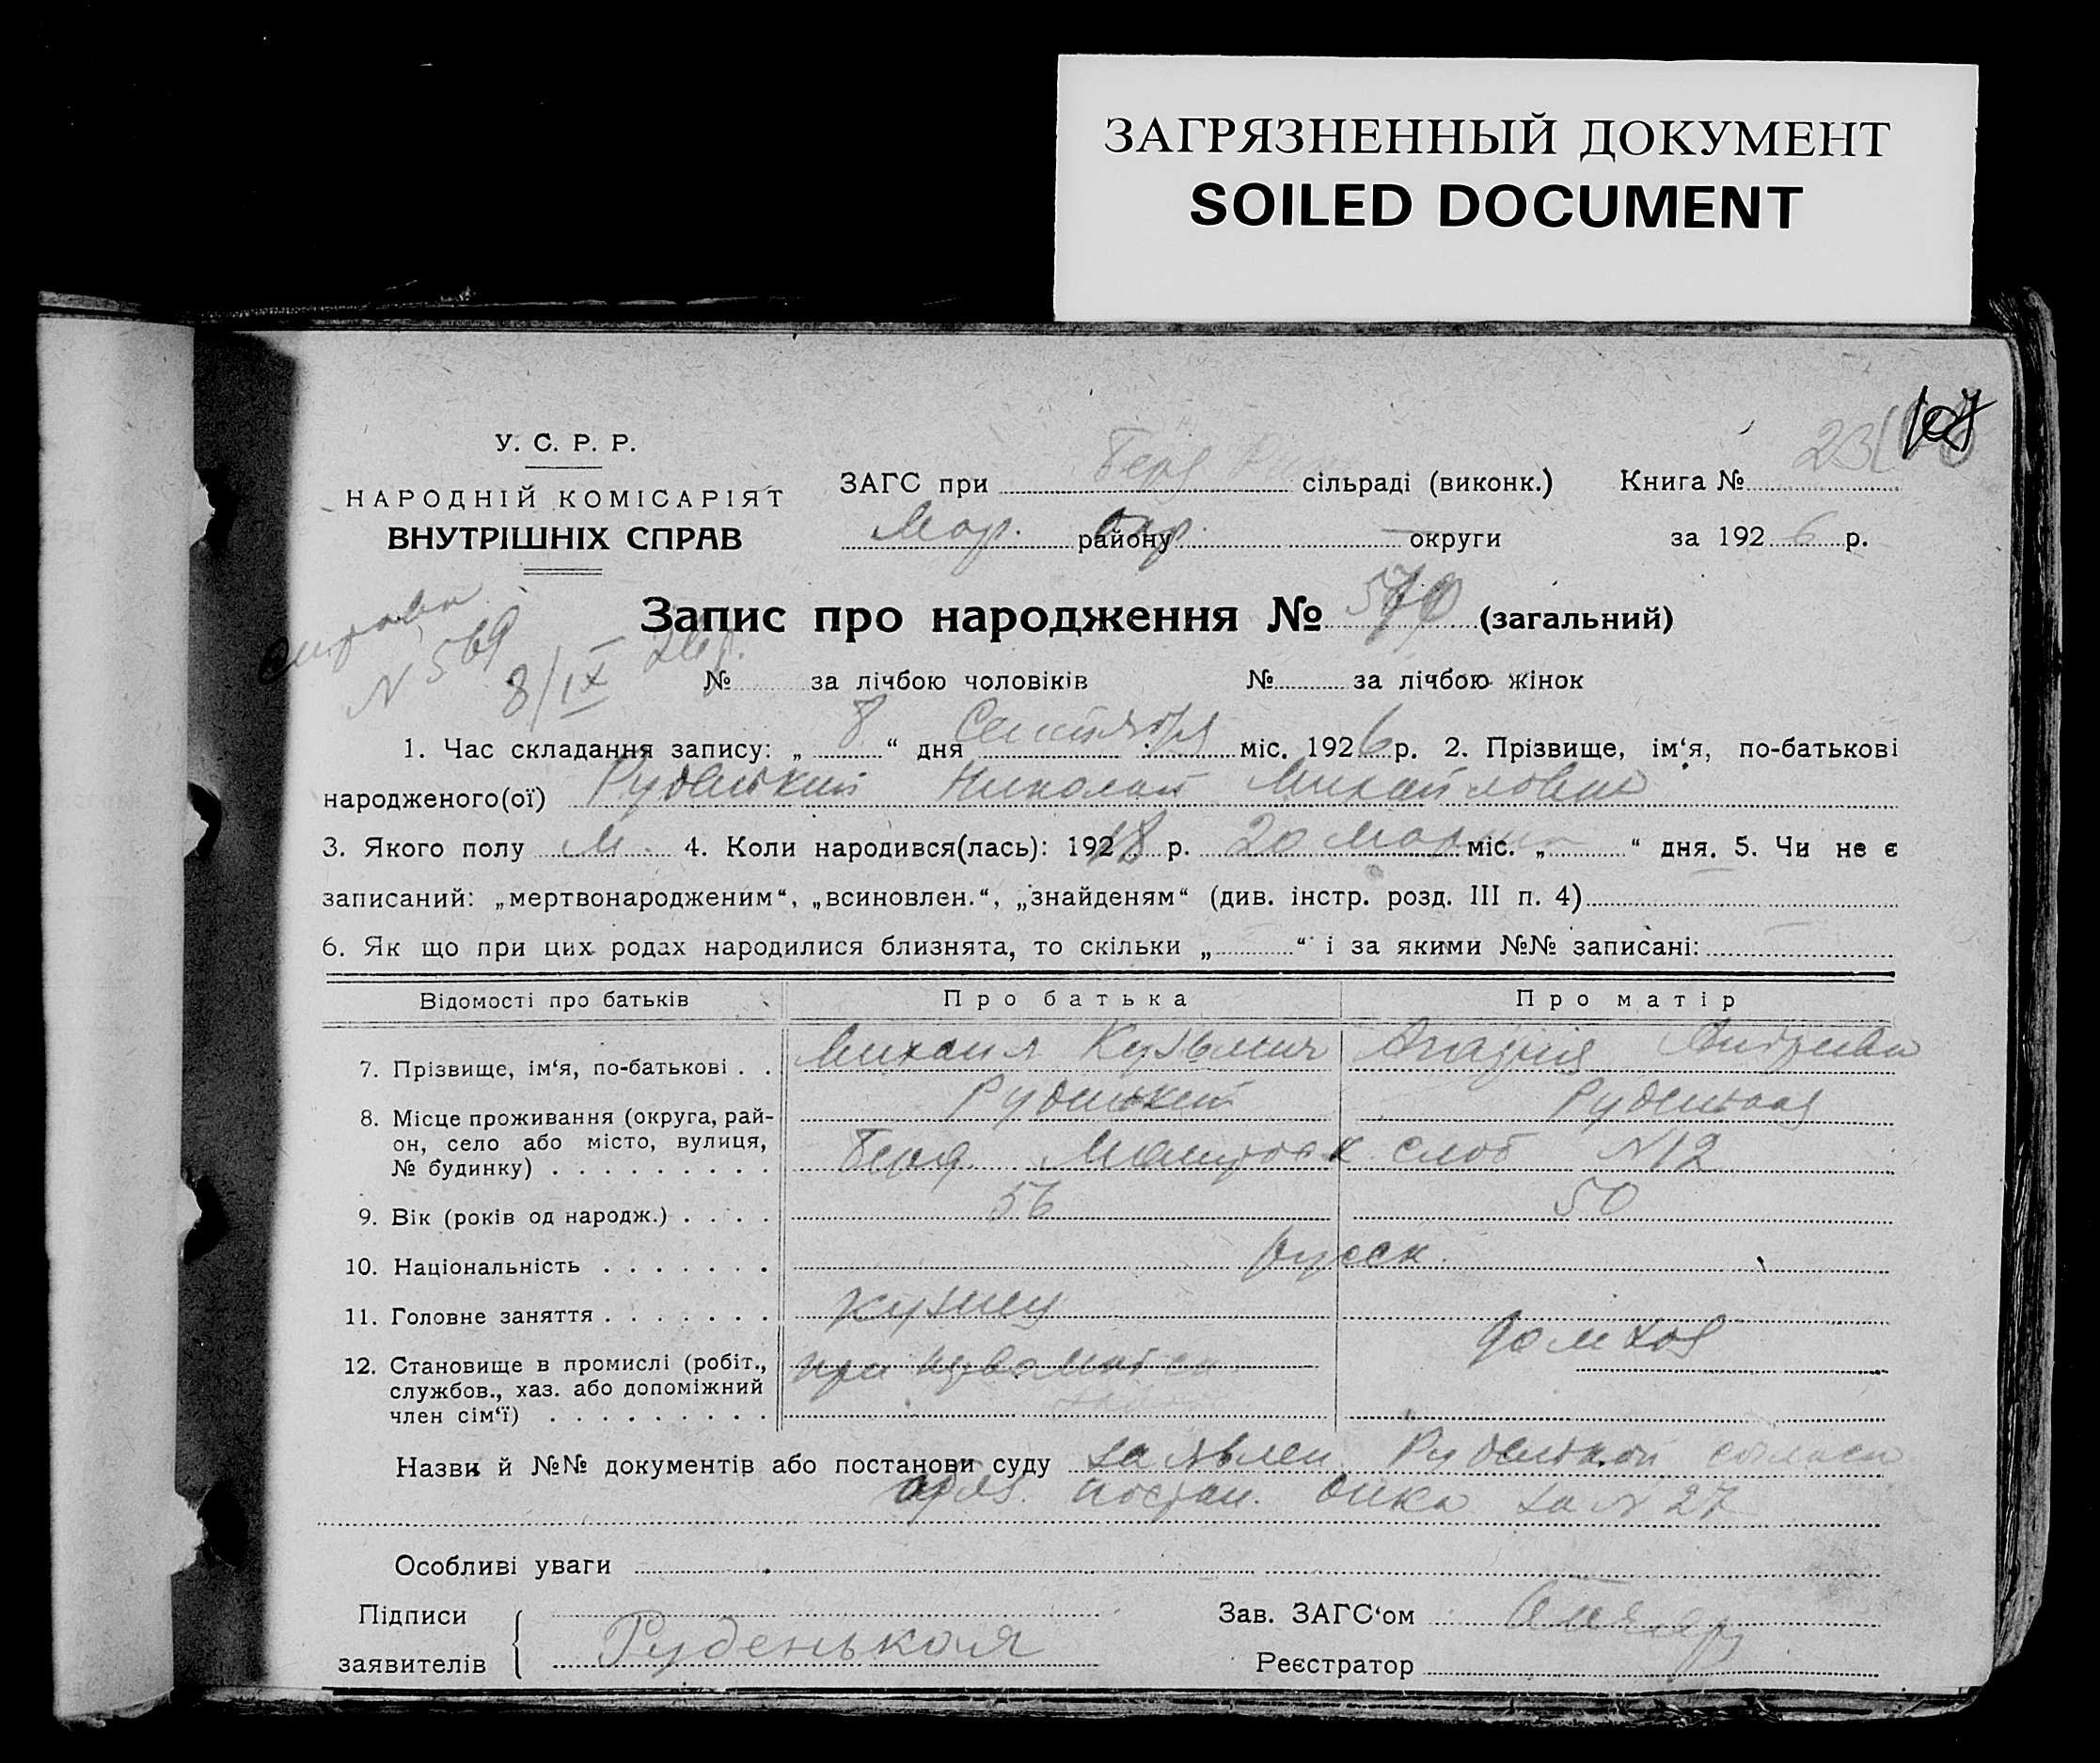 ЗАГРЯЗНЕННЫЙ ДОКУМЕНТ
SOILED DOCUMENT
107
У. С. Р. Р.
НАРОДНІЙ КОМІСАРІЯТ
ВНУТРІШНІХ СПРАВ
ЗАГС при Берд сільраді (виконк.) Книга № 23
Мар. району Окр. округи за 1926 р.
Запис про народження № 570 (загальний)
справка
N 569
8/IX 26 г.
№ за лічбою чоловіків № за лічбою жінок
1. Час складання запису: „ 8 “ дня Сентября міс. 1926 р. 2. Прізвище, ім‘я, по-батькові
народженого(ої) Руденький Николай Михайлович
3. Якого полу м. 4. Коли народився(лась): 1918 р. 20 марта міс. „ “ дня. 5. Чи не є
записаний: „мертвонародженим“, „всиновлен.“, „знайденям“ (див. інстр. розд. III п. 4)
6. Як що при цих родах народилися близнята, то скільки „ “ і за якими №№ записані:
Відомості про батьків Про батька Про матір
7. Прізвище, ім‘я, по-батькові . . Михаил Кузьмич Андреева
Руденький Руденькая
8. Місце проживання (округа, рай-
он, село або місто, вулиця,
№ будинку) . . . . . . . . . Берд. слоб N12
9. Вік (років од народж.) . . . . 56 50
10. Національність . . . . . . . русск.
11. Головне заняття . . . . . . . кузнец
домхоз
12. Становище в промислі (робіт.,
службов., хаз. або допоміжний
член сім‘ї) . . . . . . . . . при
Назви й №№ документів або постанови суду заявлен. Руденькой согласн
постан. за N 27
Особливі уваги
Підписи
заявителів Руденькая
Зав. ЗАГС‘ом
Реєстратор